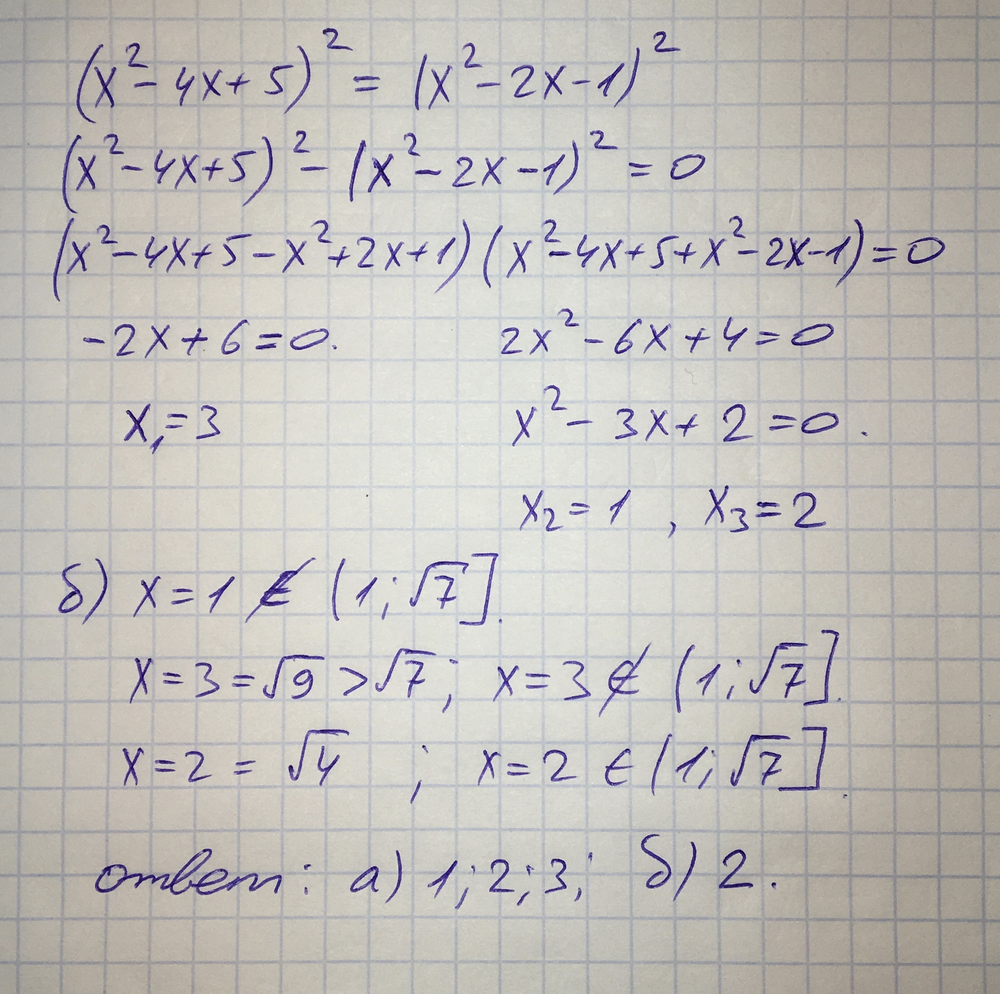 (x² - 4x + 5)² = (x² - 2x - 1)²
(x² - 4x + 5)² - (x² - 2x - 1)² = 0
(x² - 4x + 5 - x² + 2x + 1)(x² - 4x + 5 + x² - 2x - 1) = 0
-2x + 6 = 0. 2x² - 6x + 4 = 0
x₁ = 3 x² - 3x + 2 = 0.
x₂ = 1 , x₃ = 2
б) x = 1 ∉ (1; √7].
x = 3 = √9 > √7; x = 3 ∉ (1; √7].
x = 2 = √4 ; x = 2 ∈ (1; √7].
ответ: а) 1; 2; 3; б) 2.